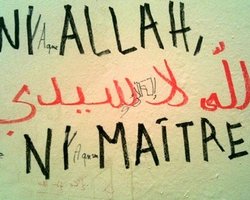 NY ALLAH,
الله لا سيدي
NY MAÎTRE